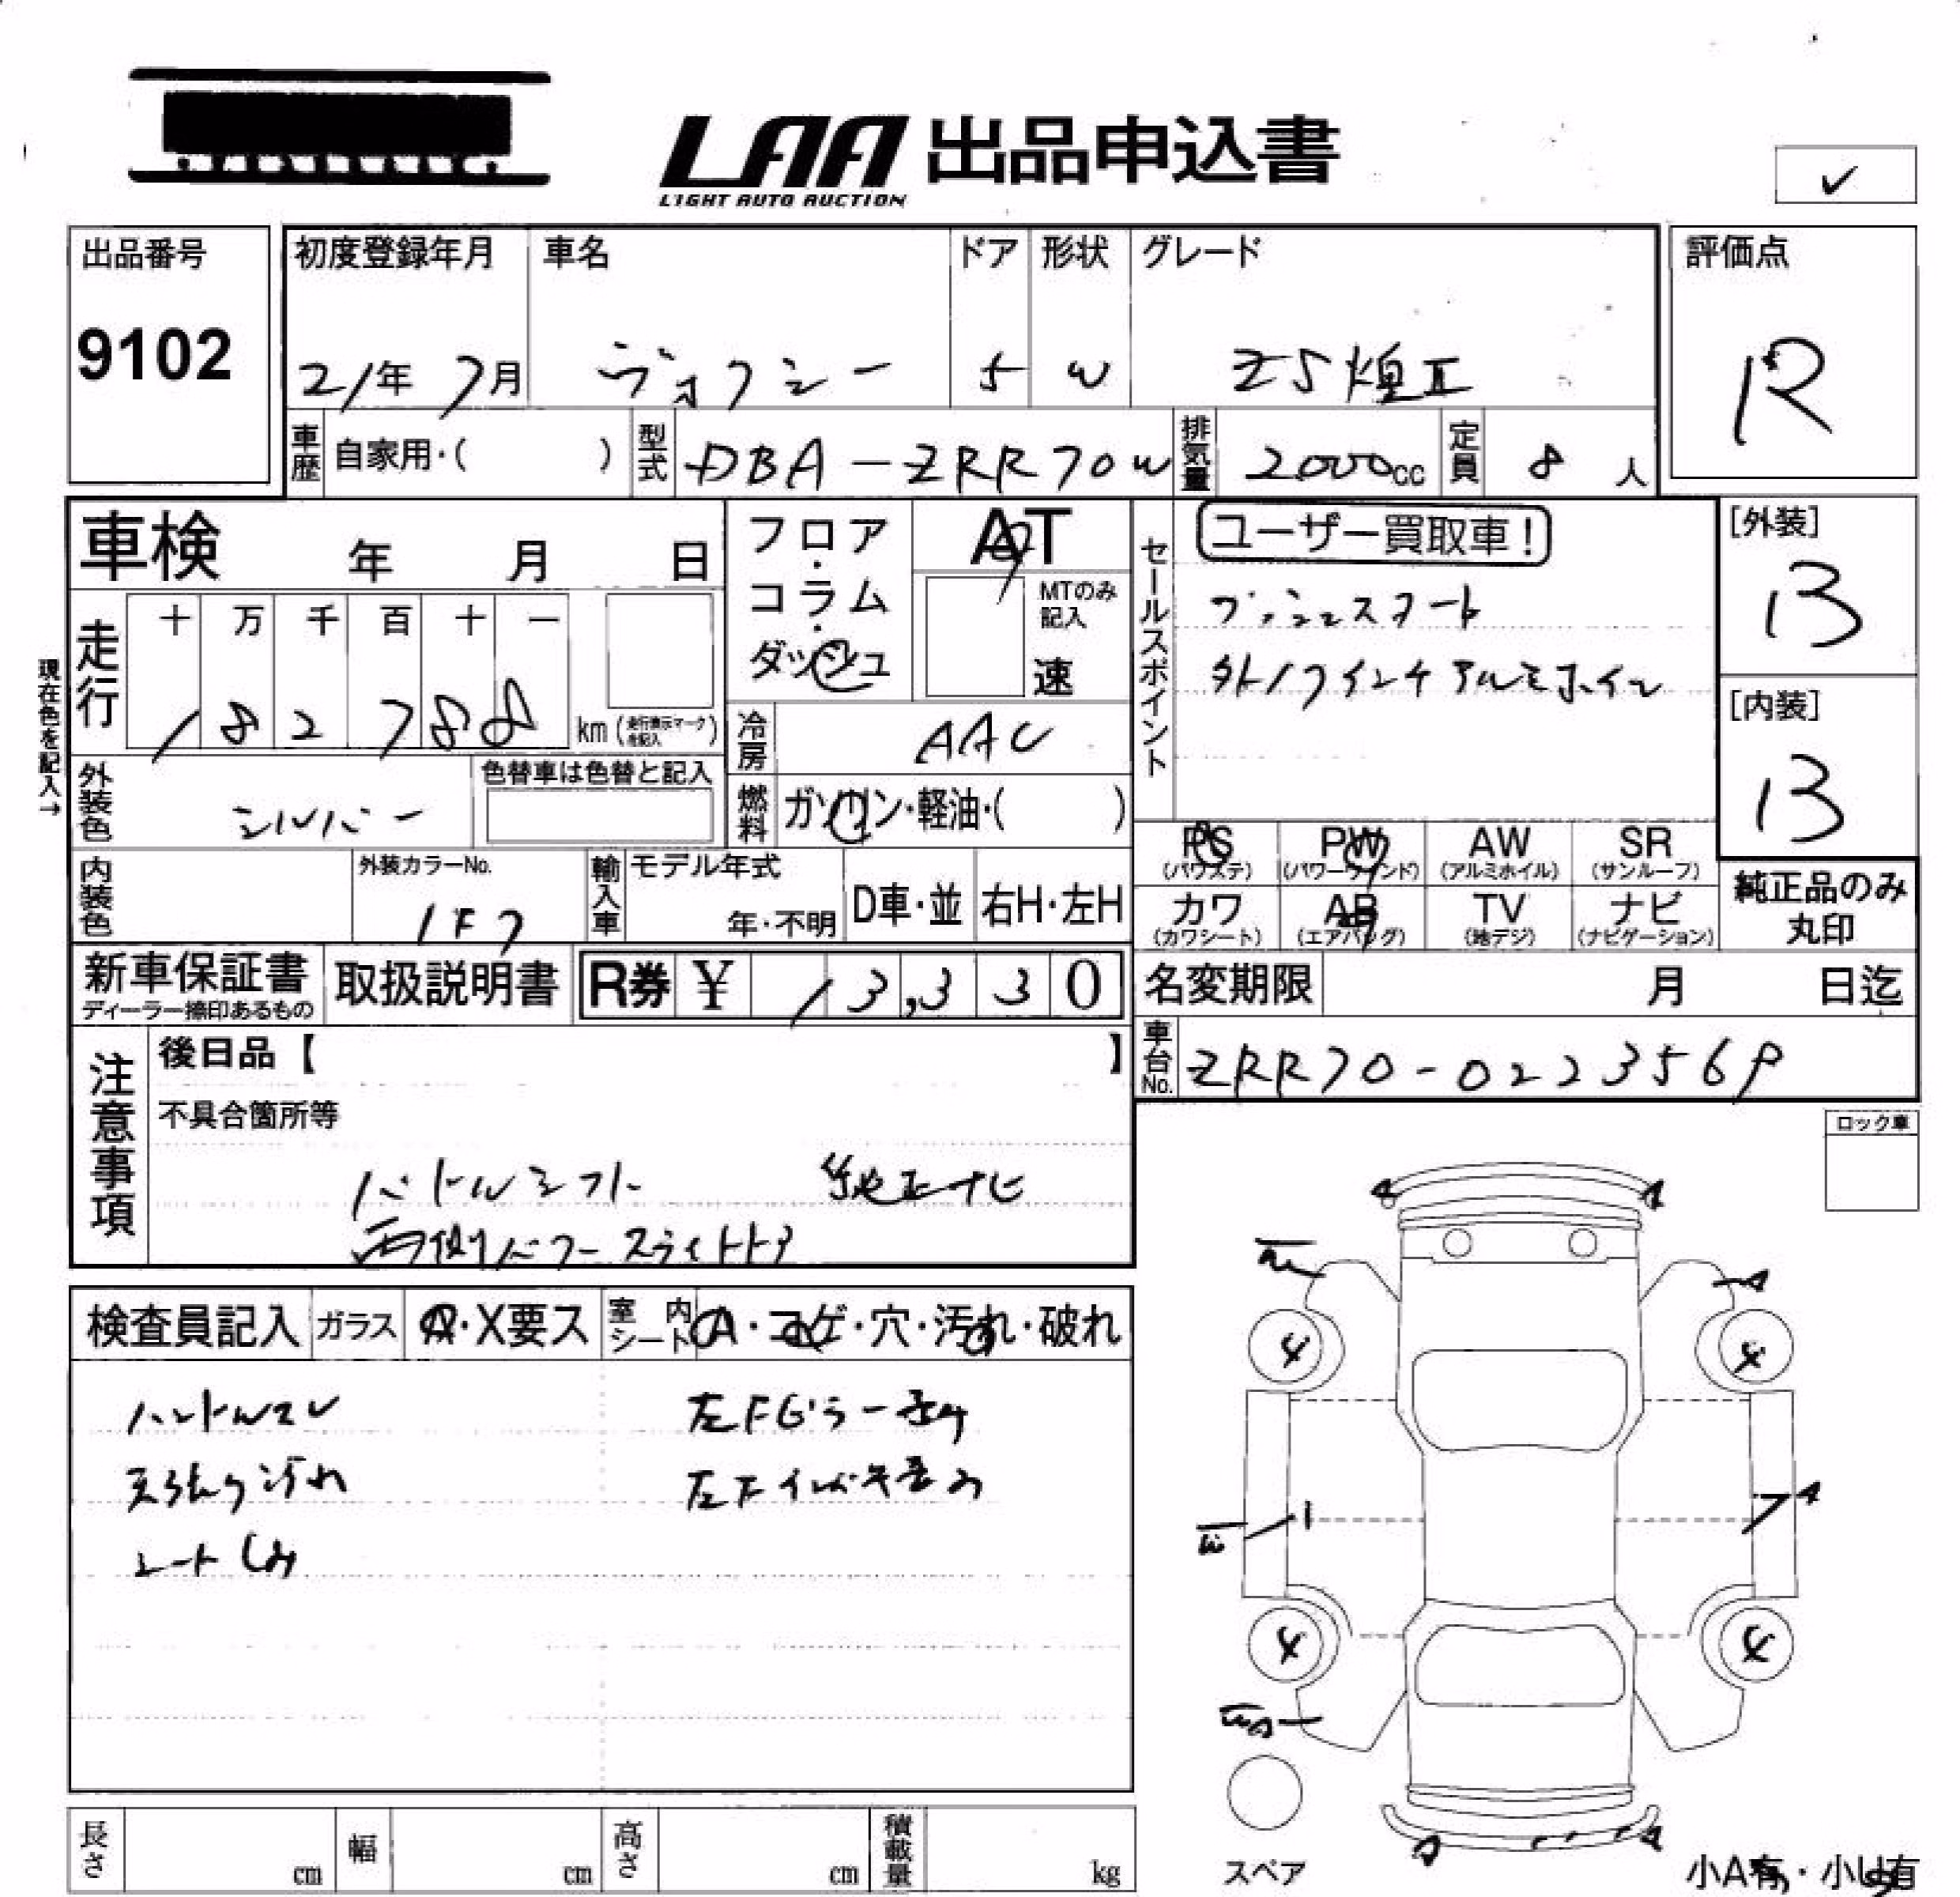 LAA 出品申込書
LIGHT AUTO AUCTION
✓
出品番号
9102
初度登録年月
21年 7月
車名
ヴォクシー
ドア
5
形状
W
グレード
ZS煌Ⅱ
評価点
R
車歴 自家用・( )
型式 DBA-ZRR70W
排気量 2000cc
定員 8人
車検 年 月 日
フロア・コラム・ダッシュ
AT
MTのみ記入
速
セールスポイント
ユーザー買取車!
プッシュスタート
外17インチアルミホイル
[外装]
B
[内装]
B
現在色を記入→
走行
十 万 千 百 十 一
1 8 2 7 8 8
km (走行表示マークを記入)
冷房 AAC
外装色 シルバー
色替車は色替と記入
燃料 ガソリン・軽油・( )
PS (パワステ)
PW (パワーウインド)
AW (アルミホイル)
SR (サンルーフ)
カワ (カワシート)
AB (エアバッグ)
TV (地デジ)
ナビ (ナビゲーション)
純正品のみ丸印
内装色
外装カラーNo.
1F7
輸入車
モデル年式
年・不明
D車・並
右H・左H
新車保証書
ディーラー捺印あるもの
取扱説明書
R券 ¥ 13,330
名変期限 月 日迄
車台No. ZRR70-0223569
注意事項
後日品【 】
不具合箇所等
パドルシフト 純正ナビ
両側パワースライドドア
ロック車
検査員記入
ガラス A・X要ス
室内シート A・コゲ・穴・汚れ・破れ
ハンドルスレ
天張り汚れ
シートしみ
左Fピラー
左Fインパネ歪み
A
A
A
4
4
A
4
4
A
スペア
小A有・小U有
長さ cm
幅 cm
高さ cm
積載量 kg